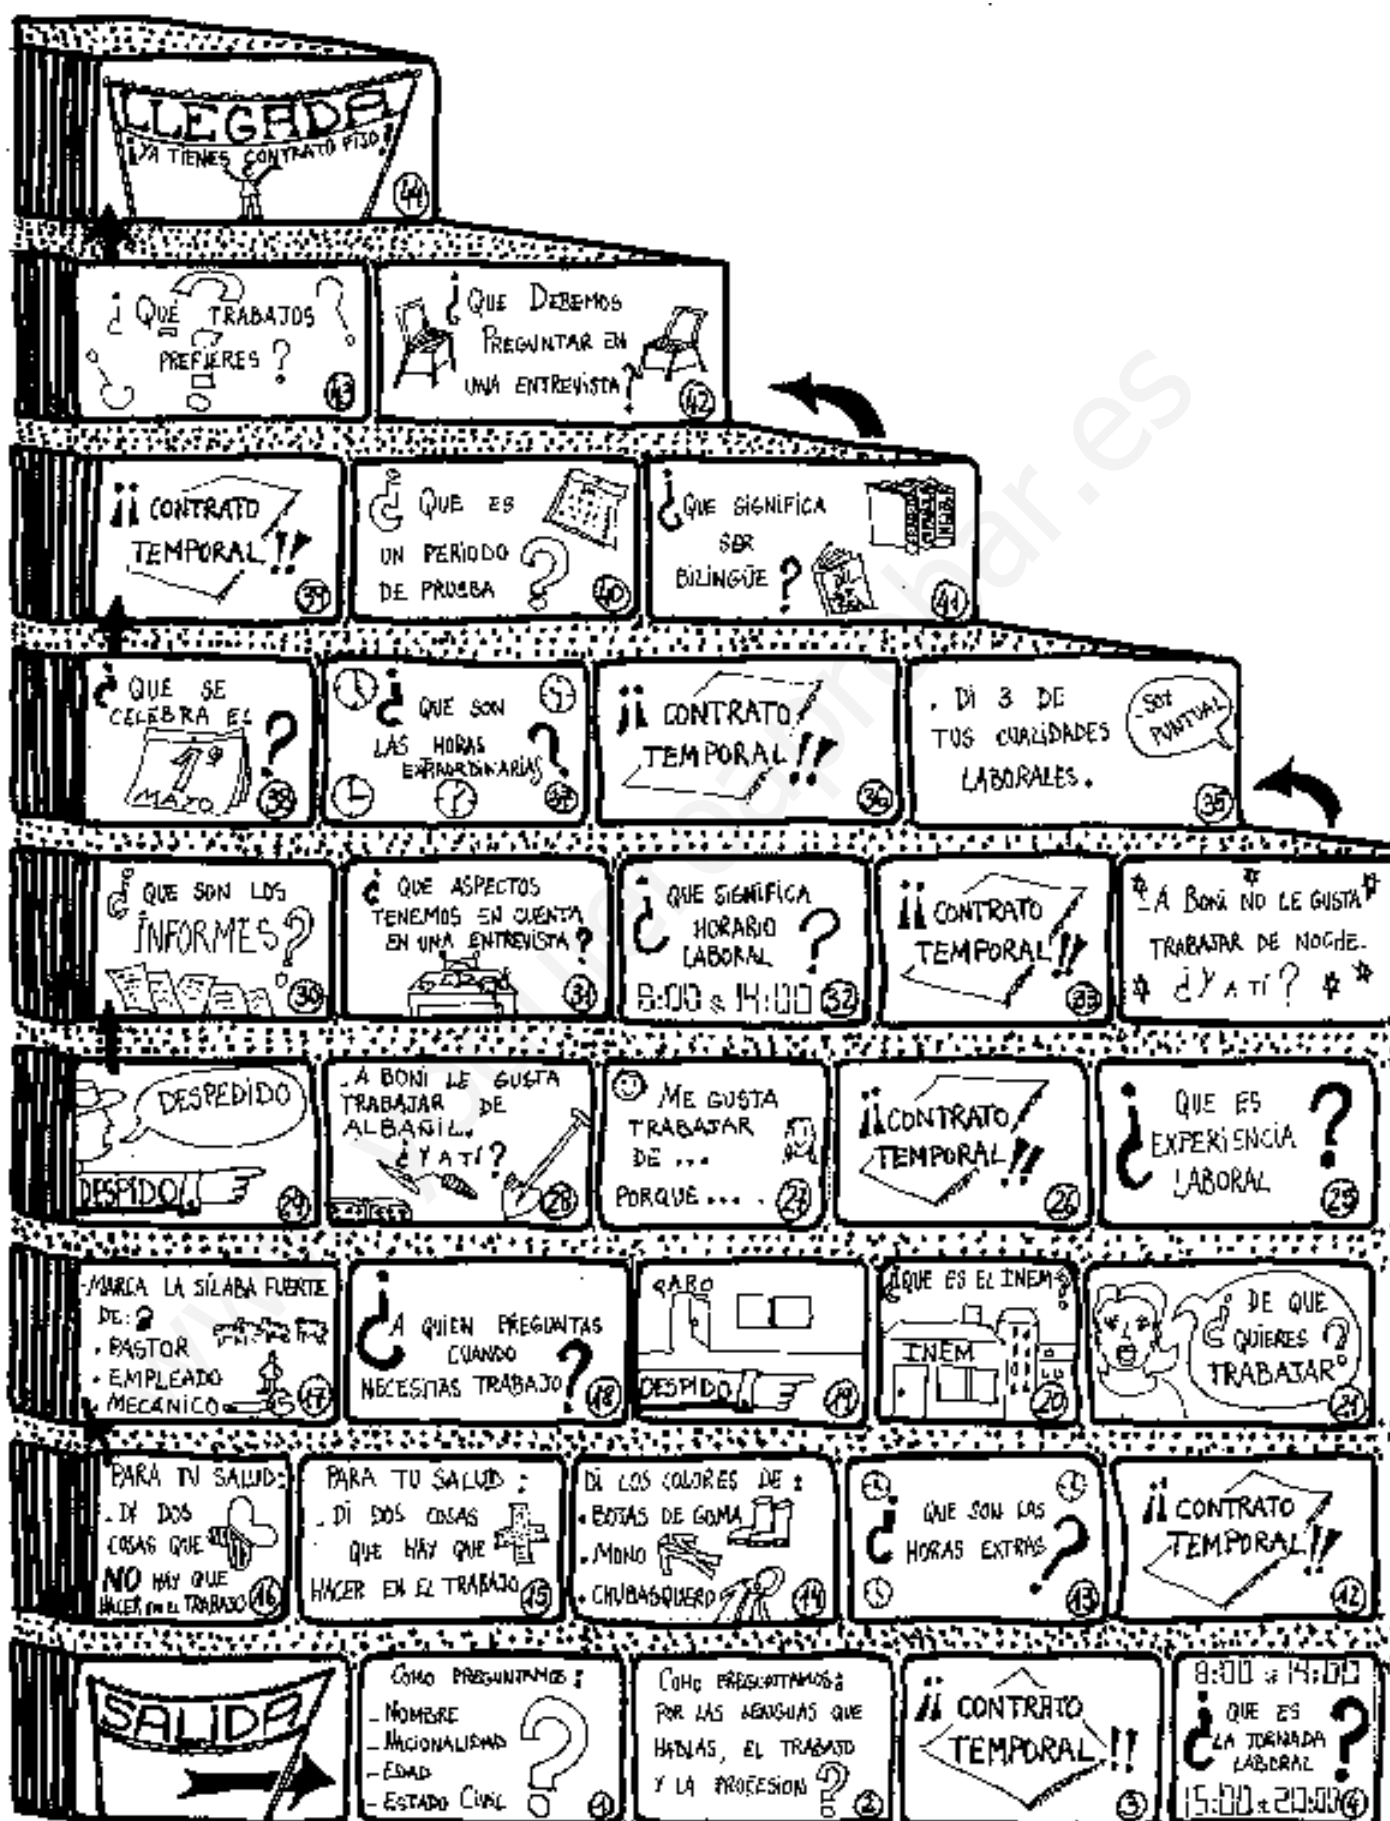 LLEGADA
¡YA TIENES CONTRATO FIJO!
44
¿QUÉ TRABAJOS
PREFIERES?
43
¿QUE DEBEMOS
PREGUNTAR EN
UNA ENTREVISTA?
42
¡¡CONTRATO
TEMPORAL!!
39
¿QUE ES
UN PERIODO
DE PRUEBA?
40
¿QUE SIGNIFICA
SER
BILINGÜE?
41
¿QUE SE
CELEBRA EL
1º
MAYO?
38
¿QUE SON
LAS HORAS
EXTRAORDINARIAS?
37
¡¡CONTRATO
TEMPORAL!!
36
. DI 3 DE
TUS CUALIDADES
LABORALES.
- SOY
PUNTUAL
35
¿QUE SON LOS
INFORMES?
30
¿QUE ASPECTOS
TENEMOS EN CUENTA
EN UNA ENTREVISTA?
31
¿QUE SIGNIFICA
HORARIO
LABORAL?
8:00 a 14:00
32
¡¡CONTRATO
TEMPORAL!!
33
- A BONI NO LE GUSTA
TRABAJAR DE NOCHE.
¿Y A TÍ?
DESPEDIDO
DESPIDO
29
- A BONI LE GUSTA
TRABAJAR DE
ALBAÑIL.
¿Y A TÍ?
28
ME GUSTA
TRABAJAR
DE ...
PORQUE ....
27
¡¡CONTRATO
TEMPORAL!!
26
¿QUE ES
EXPERIENCIA
LABORAL?
25
- MARCA LA SÍLABA FUERTE
DE:
. PASTOR
. EMPLEADO
. MECÁNICO
17
¿A QUIEN PREGUNTAS
CUANDO
NECESITAS TRABAJO?
18
PARO
DESPIDO
19
¿QUE ES EL INEM?
INEM
20
¿DE QUE
QUIERES
TRABAJAR?
21
PARA TU SALUD:
. DÍ DOS
COSAS QUE
NO HAY QUE
HACER EN EL TRABAJO
16
PARA TU SALUD:
. DÍ DOS COSAS
QUE HAY QUE
HACER EN EL TRABAJO
15
DI LOS COLORES DE:
. BOTAS DE GOMA
. MONO
. CHUBASQUERO
14
¿QUE SON LAS
HORAS EXTRAS?
13
¡¡CONTRATO
TEMPORAL!!
12
SALIDA
COMO PREGUNTAMOS:
- NOMBRE
- NACIONALIDAD
- EDAD
- ESTADO CIVIL
?
1
COMO PREGUNTAMOS:
POR LAS LENGUAS QUE
HABLAS, EL TRABAJO
Y LA PROFESION?
2
¡¡CONTRATO
TEMPORAL!!
3
8:00 a 14:00
¿QUE ES
LA JORNADA
LABORAL?
15:00 a 20:00
4